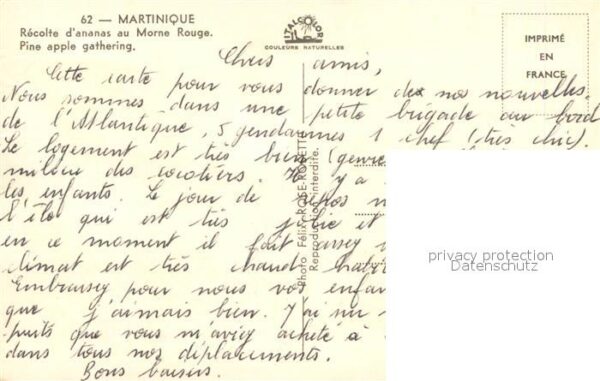 62 — MARTINIQUE
Récolte d'ananas au Morne Rouge.
Pine apple gathering.
ITALCOLOR
COULEURS NATURELLES
IMPRIMÉ
EN
FRANCE
Chers amis,
Cette carte pour vous donner de nos nouvelles.
Nous sommes dans une petite brigade au bord
de l'Atlantique, 5 gendarmes 1 chef (très chic).
Le logement est très bien (genre
milieu des cocotiers. Il y a
les enfants. Le jour de repos
l'île qui est très jolie et
en ce moment il fait assez
climat est très chaud
Embrassez pour nous vos enfan
que j'aimais bien. J'ai mi
puits que vous m'aviez acheté à
dans tous nos déplacements.
Bons baisers.
Photo Félix ROSE-ROSETTE
Reproduction interdite.
privacy protection
Datenschutz